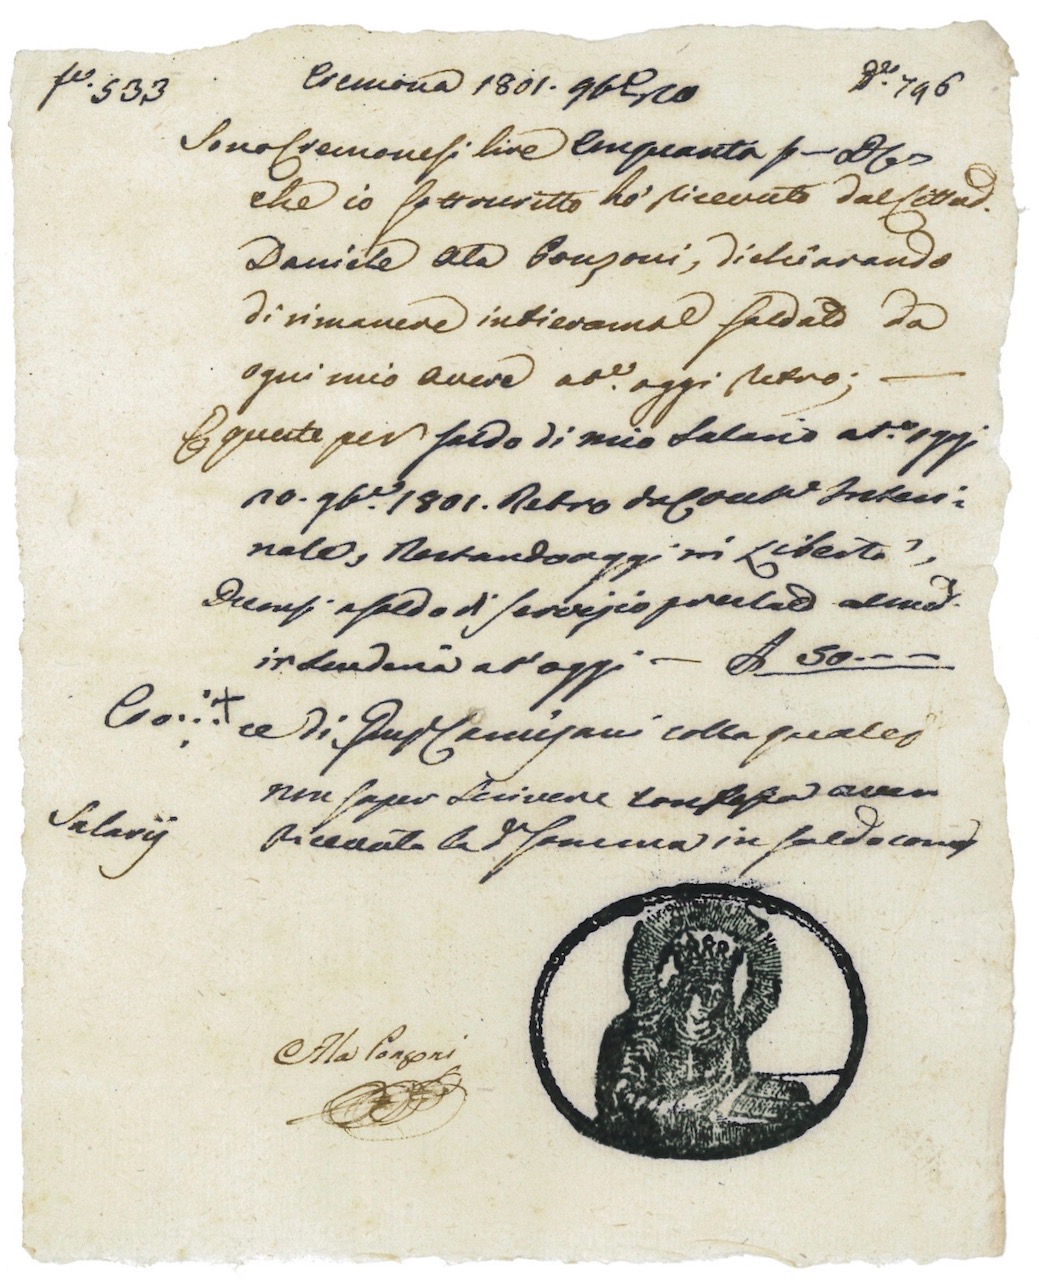 fo. 533 Cremona 1801. 9bre 20 No. 796
Sono Cremonesi lire Cinquanta p
che io sottoscritto hò ricevuto dal Cittad.
Daniele Ala Ponzoni, dichiarando
di rimanere intierame saldato da
ogni mio avere a to. oggi retro; —
E queste per saldo di mio Salario a to. oggi
20. 9bre. 1801. Retro
nale, Restando oggi in Libertà,
a saldo di servizio prestato
a to oggi — 50 — —
Cro ✝ ce di Camisani colla quale p
non saper scrivere confessa aver
ricevuta la da Somma in saldo come
Salarij
Ala Ponzoni